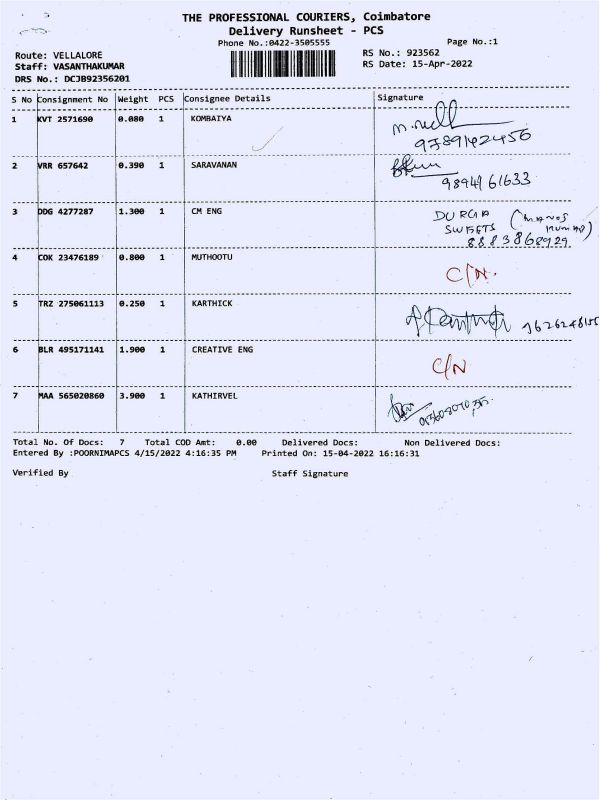 THE PROFESSIONAL COURIERS, Coimbatore
Delivery Runsheet - PCS
Phone No.:0422-3505555
Page No.:1
Route: VELLALORE
RS No.: 923562
Staff: VASANTHAKUMAR
RS Date: 15-Apr-2022
DRS No.: DCJB92356201
S No Consignment No Weight PCS Consignee Details Signature
1 KVT 2571690 0.080 1 KOMBAIYA
9789142456
2 VRR 657642 0.390 1 SARAVANAN
9894961633
3 DDG 4277287 1.300 1 CM ENG DURGA
SWEETS
8883868929
4 COK 23476189 0.800 1 MUTHOOTU C/N.
5 TRZ 275061113 0.250 1 KARTHICK
6 BLR 495171141 1.900 1 CREATIVE ENG C/N
7 MAA 565020860 3.900 1 KATHIRVEL
Total No. Of Docs: 7 Total COD Amt: 0.00 Delivered Docs: Non Delivered Docs:
Entered By :POORNIMAPCS 4/15/2022 4:16:35 PM Printed On: 15-04-2022 16:16:31
Verified By Staff Signature